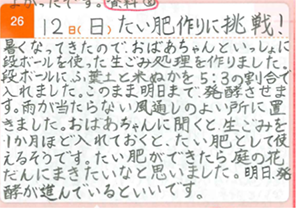 26
12日(日)たい肥作りに挑戦!
暑くなってきたので、おばあちゃんといっしょに
段ボールを使った生ごみ処理を作りました。
段ボールにふ葉土と米ぬかを5:3の割合で
入れました。このまま明日まで、発酵させま
す。雨が当たらない風通しのよい所に置
きました。おばあちゃんに聞くと、生ごみを
1か月ほど入れておくと、たい肥として使
えるそうです。たい肥ができたら、庭の花
だんにまきたいなと思いました。明日、発
酵が進んでいるといいです。